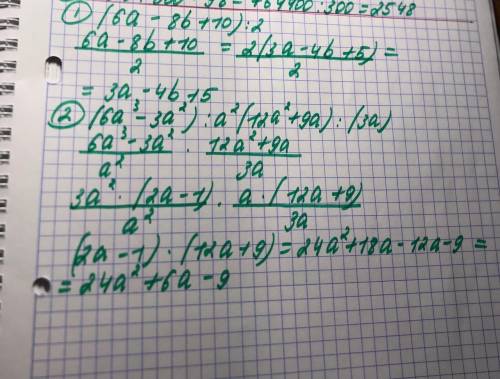 764400 : 300 = 2548
① (6a - 8b + 10) : 2
6a - 8b + 10 / 2 = 2(3a - 4b + 5) / 2 =
= 3a - 4b + 5
② (6a³ - 3a²) : a² (12a² + 9a) : (3a)
6a³ - 3a² / a² · 12a² + 9a / 3a
3a² · (2a - 1) / a² · a · (12a + 9) / 3a
(2a - 1) · (12a + 9) = 24a² + 18a - 12a - 9 =
= 24a² + 6a - 9